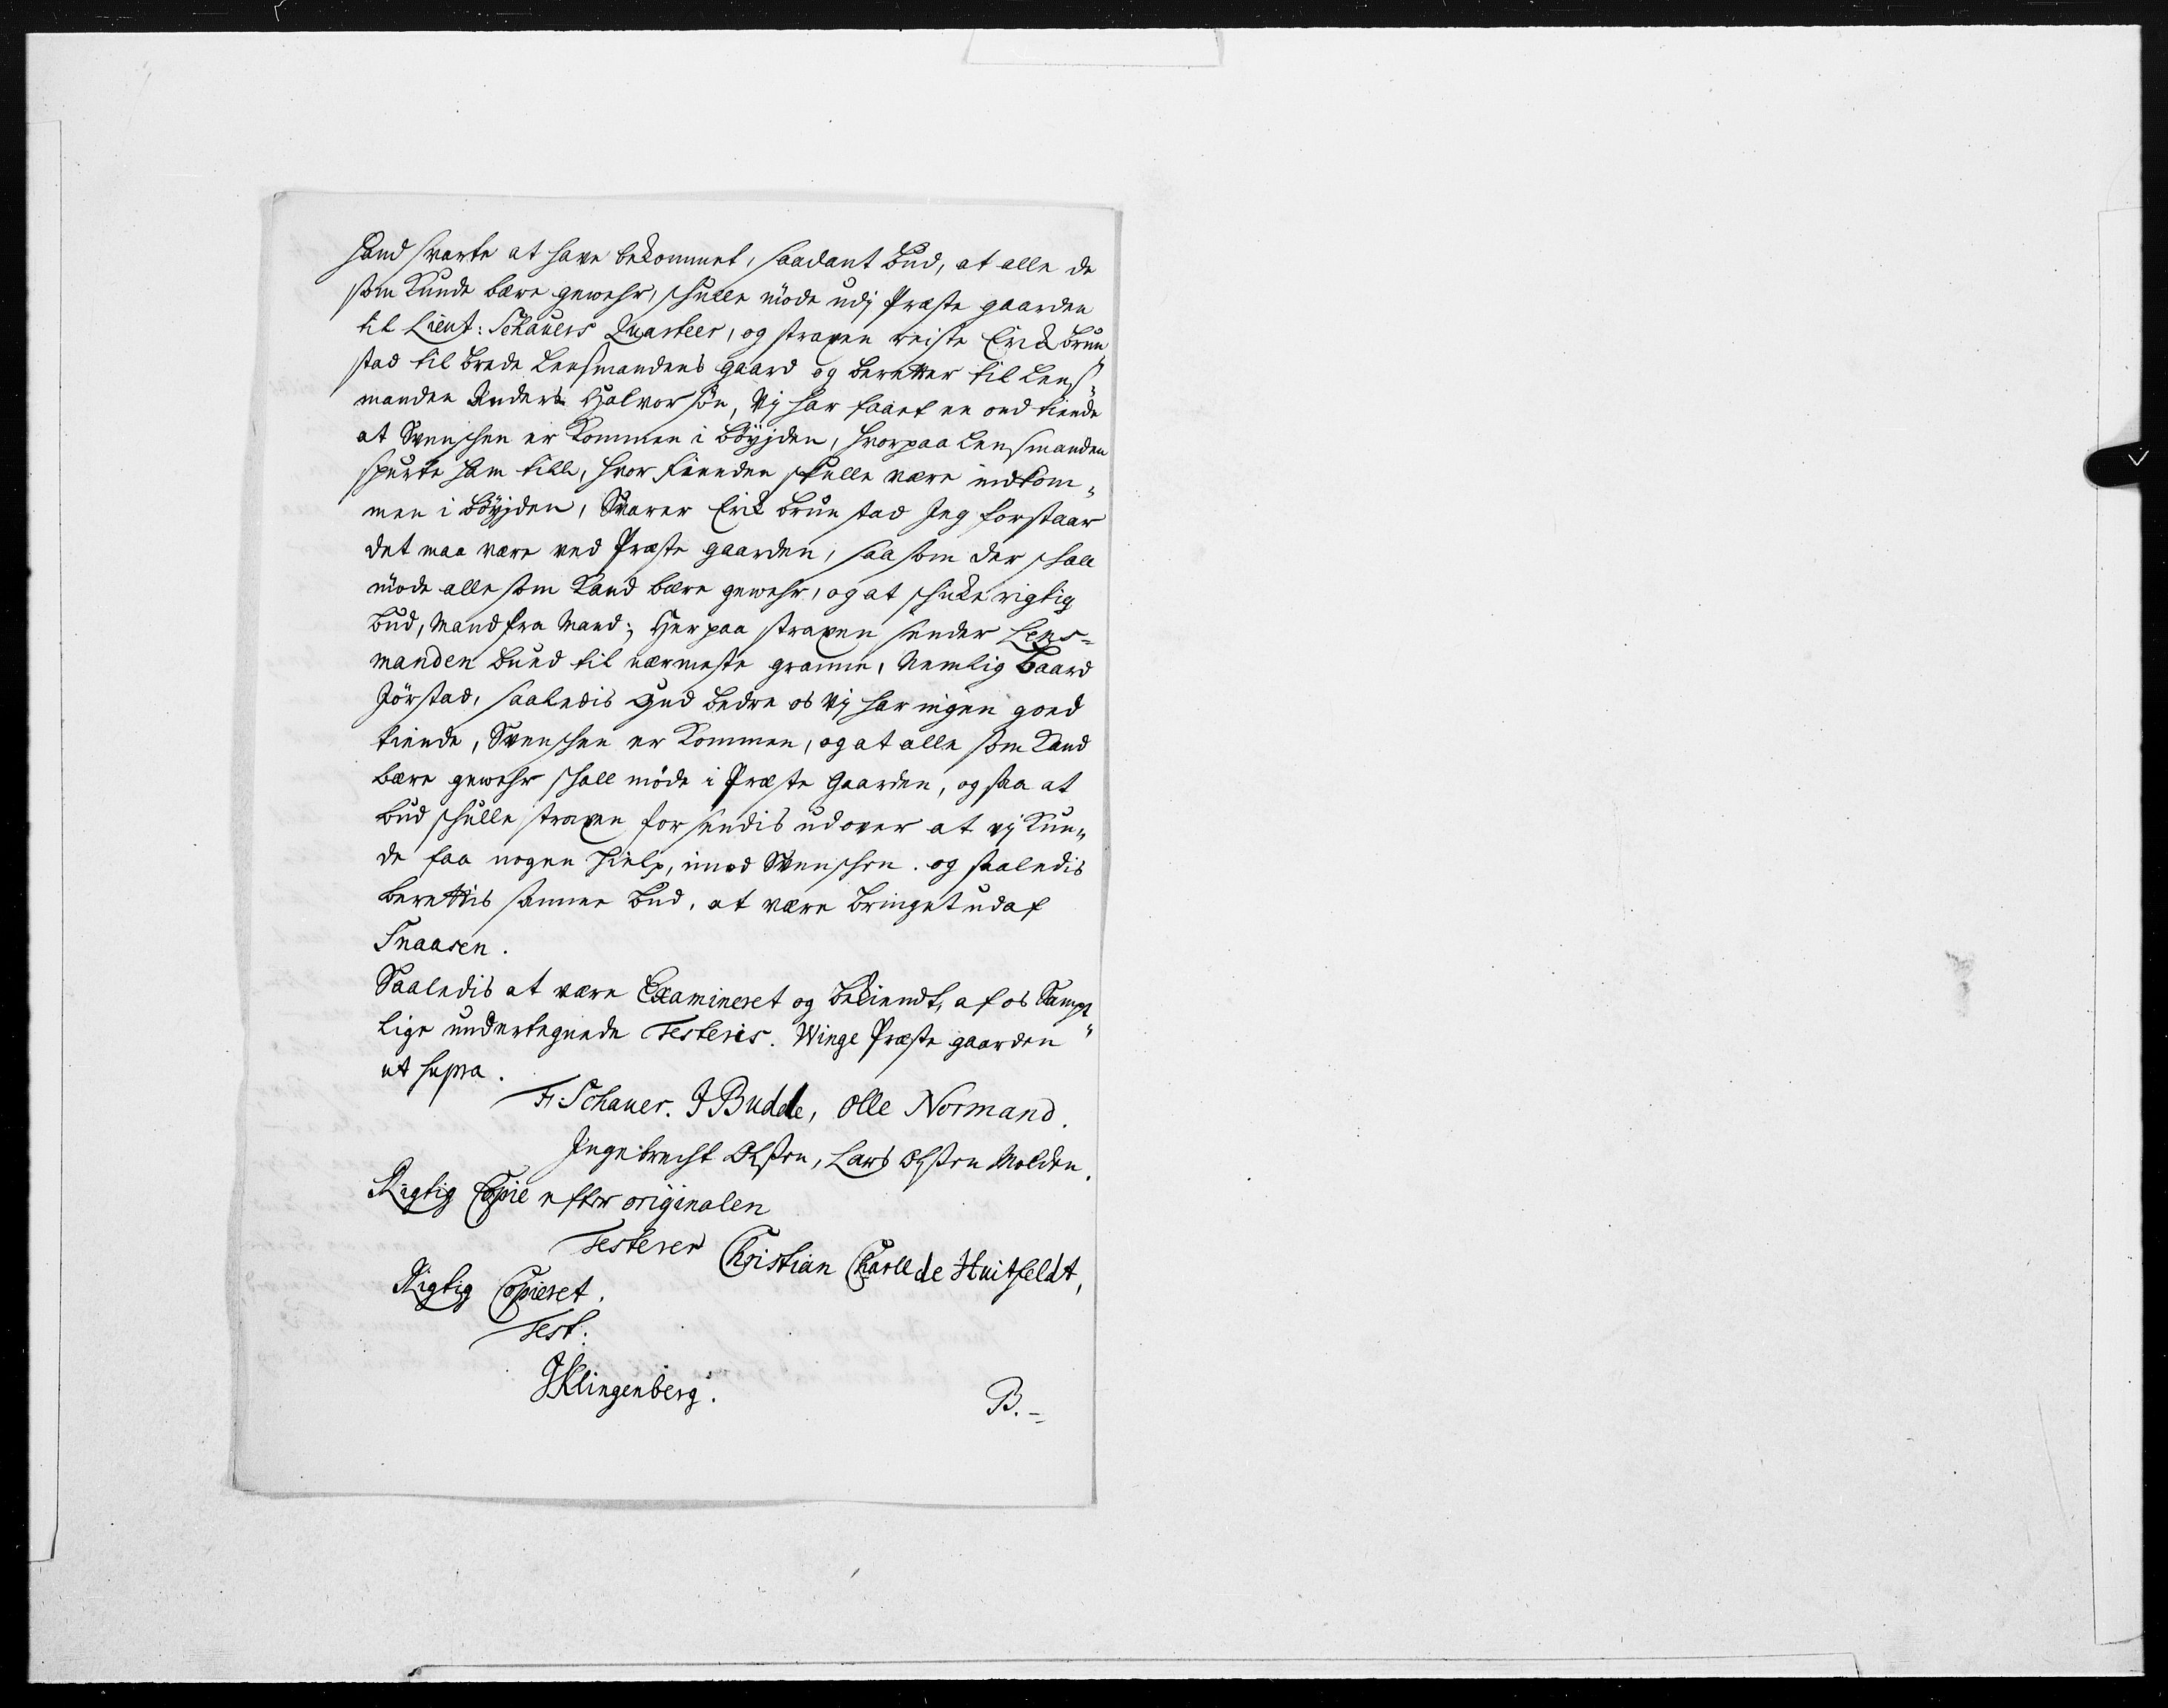 Hand svarte at have bekommet, saadant Bud, at alle de
som kunde bære gewehr, schulle möde udj Præste gaarden
til Lieut: Schauers Quarteer, og straxen reiste Erik Brun„
stad til Brede Lensmandens gaard og beretter til Lens„
manden Anders Halvorsön, Vj har faaet en ond tiende
at Svenschen er kommen i Böyden, hvorpaa Lensmanden
spurte ham till, hvor Fienden skulle være indkom„
men i Böyden, Svarer Erik Brunstad Jeg forstaar
det maa være ved Præste gaarden, saasom der schall
möde alle som kand bære gewehr, og at schike rigtig
Bud, Mand fra Mand; Her paa straxen sender Lens=
manden Bud til nærmeste granne, Nemlig Baard
Jörstad, saaledis Gud bedre os Vj har ingen goed
tiende, Svenschen er kommen, og at alle som kand
bære gewehr schall möde i Præste Gaarden, og saa at
bud schulle straxen forsendis udover at vj kun„
de faa nogen hielp, imod Svenschen. og saaledis
berettis samme Bud, at være bringet ud af
Snaasen.
Saaledis at være Examineret og bekiendt, af os Sampt„
lige undertegnede Testeris. Winge Præste gaarden
ut supra.
Fr: Schauer. J Budde, Olle Normand.
Ingebrecht Olsøn, Lars Olsøn Molden.
Rigtig Copie efter originalen
Testerer Christian Carll de Huitfeldt,
Rigtig Copieret.
Test:
JKlingenberg.
B.=